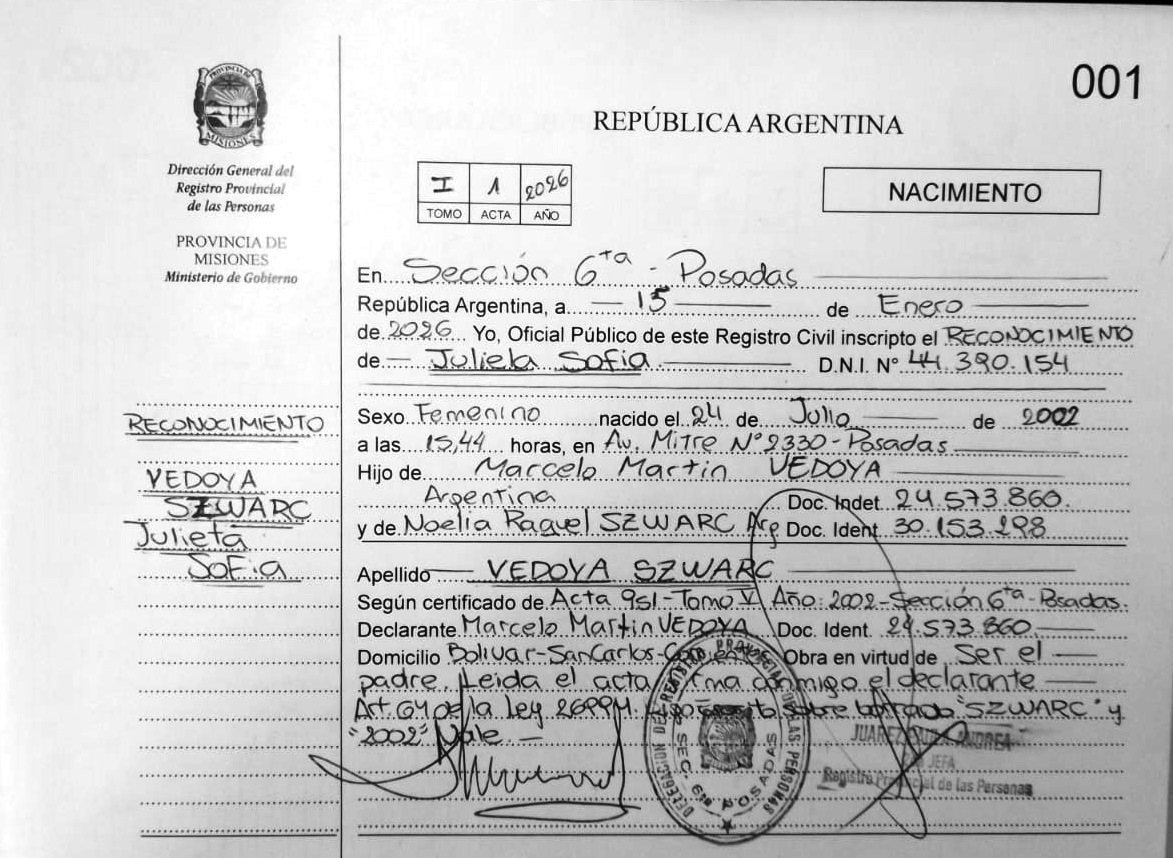 PROVINCIA DE
MISIONES
Dirección General del
Registro Provincial
de las Personas
PROVINCIA DE
MISIONES
Ministerio de Gobierno
RECONOCIMIENTO
VEDOYA
SZWARC
Julieta
SoFia
001
REPÚBLICA ARGENTINA
I 1 2026
TOMO ACTA AÑO
NACIMIENTO
En Sección 6ta - Posadas
República Argentina, a 15 de Enero
de 2026 Yo, Oficial Público de este Registro Civil inscripto el RECONOCIMIENTO
de Julieta Sofia D.N.I. N° 44.390.154
Sexo Femenino nacido el 24 de Julio de 2002
a las 15,44 horas, en Av. Mitre N° 2330 - Posadas
Hijo de Marcelo Martin VEDOYA
Argentina Doc. Indet 24.573.860.
y de Noelia Raquel SZWARC Arg Doc. Ident. 30.153.298
Apellido VEDOYA SZWARC
Según certificado de Acta 951-Tomo V Año: 2002-Sección 6ta-Posadas.
Declarante Marcelo Martin VEDOYA Doc. Ident. 24.573.860.
Domicilio Bolivar-San Carlos- Obra en virtud de Ser el
padre. Leida el acta firma conmigo el declarante
Art. 64 de la Ley 26994. sobre borrado "SZWARC" y
"2002" Vale.
DELEGACION DEL REGISTRO PROVINCIAL DE LAS PERSONAS
SEC. 6ta POSADAS
JUAREZ ANDREA
JEFA
Registro Provincial de las Personas